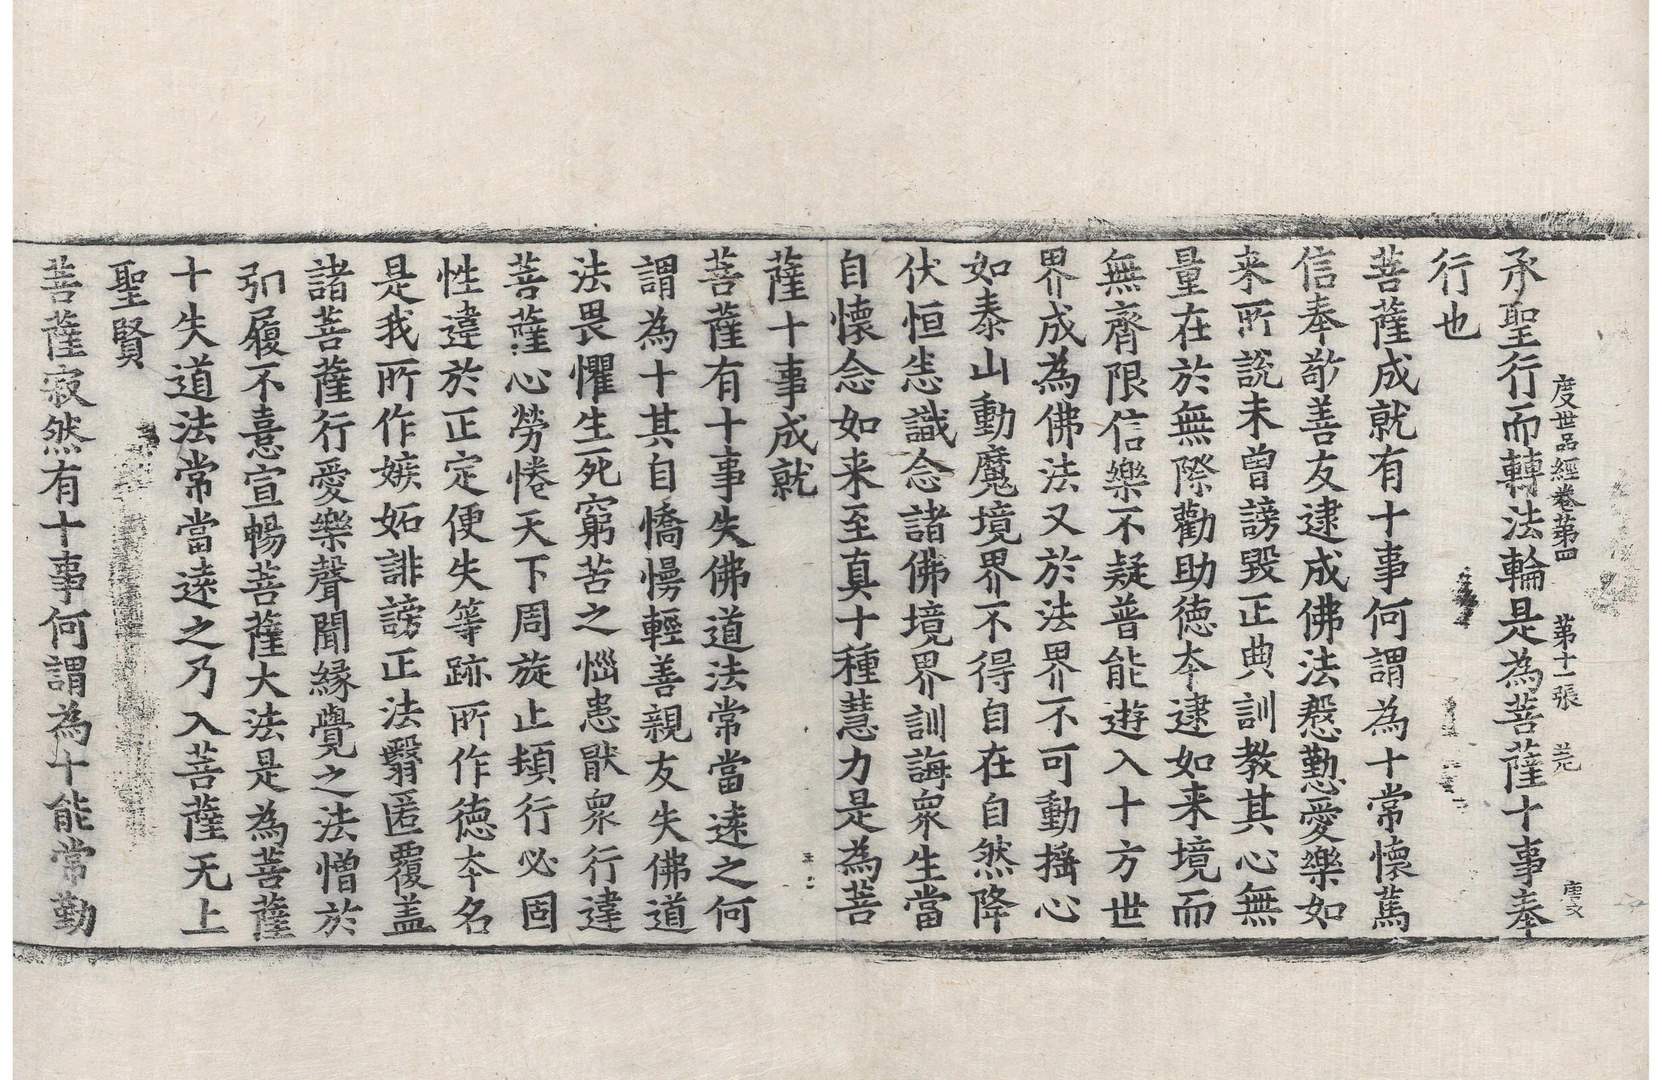 度世品經卷第四 第十一張 荒 唐文
承聖行而轉法輪是為菩薩十事奉
行也
菩薩成就有十事何謂為十常懷篤
信奉敬善友逮成佛法慇懃愛樂如
来所說未曾謗毀正典訓教其心無
量在於無際勸助德本逮如来境而
無齊限信樂不疑普能遊入十方世
界成為佛法又於法界不可動搖心
如泰山動魔境界不得自在自然降
伏恒恙識念諸佛境界訓誨衆生當
自懷念如来至真十種慧力是為菩
薩十事成就
菩薩有十事失佛道法常當遠之何
謂為十其自憍慢輕善親友失佛道
法畏懼生死窮苦之惱患猒衆行違
菩薩心勞惓天下周旋止頓行必固
性違於正定便失等跡所作德本名
是我所作嫉妬誹謗正法翳匿覆盖
諸菩薩行愛樂聲聞緣覺之法憎於
引履不憙宣暢菩薩大法是為菩薩
十失道法常當遠之乃入菩薩无上
聖賢
菩薩寂然有十事何謂為十能常勤